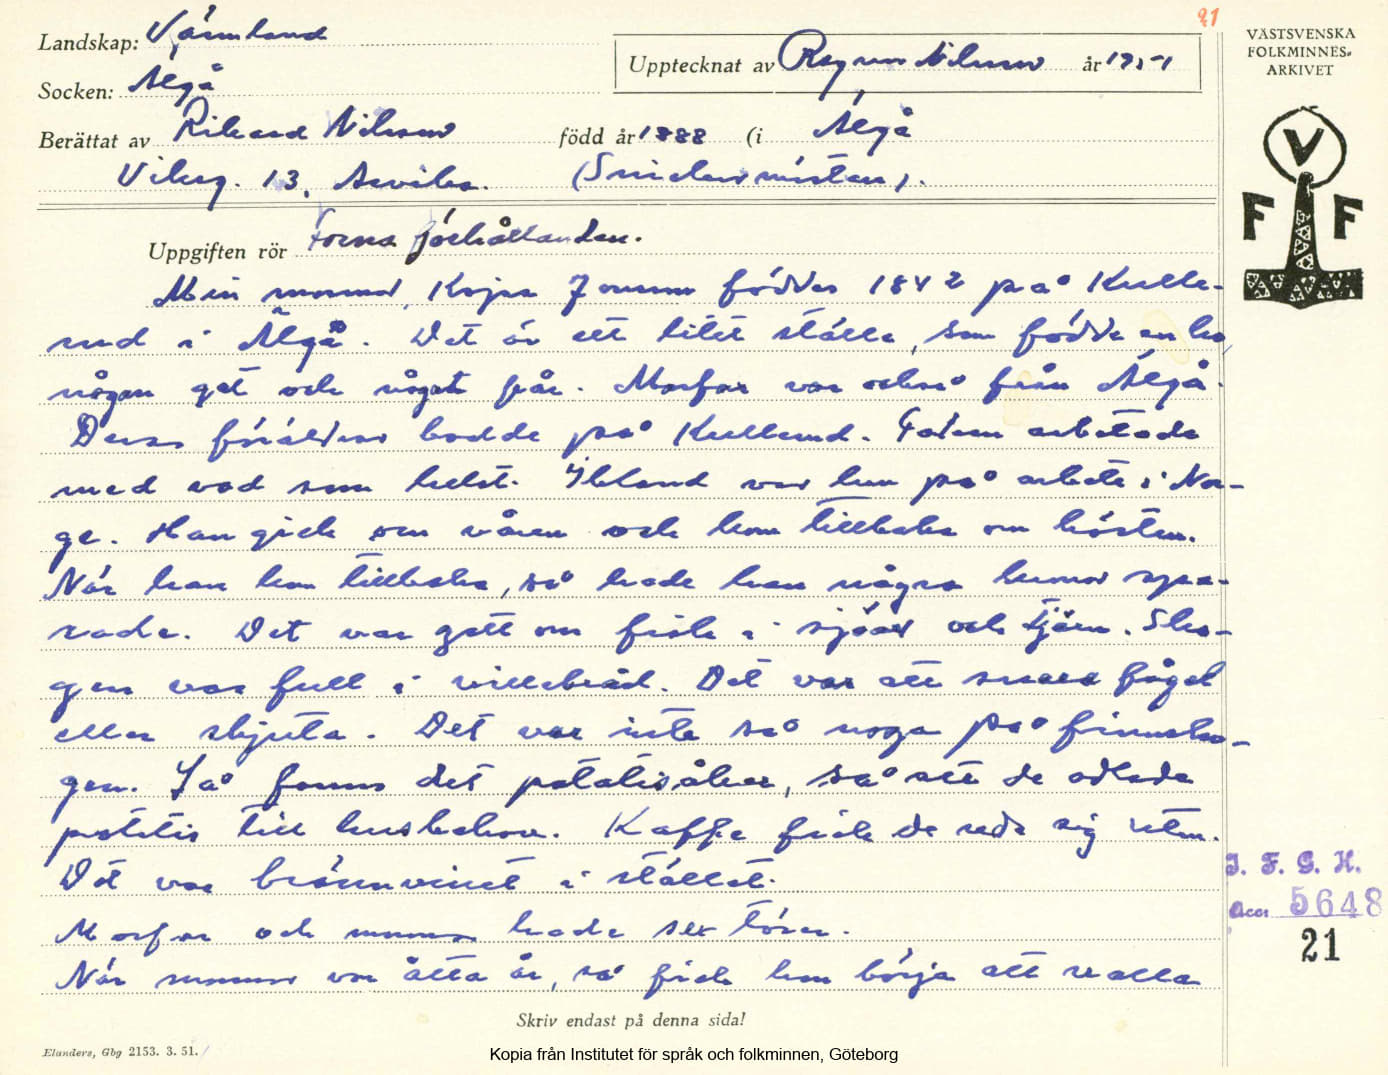 21
Landskap: Värmland
Upptecknat av Ragnar Nilsson år 1951
VÄSTSVENSKA
FOLKMINNES-
ARKIVET
Socken: Älgå
Berättat av Rikard Nilsson född år 1888 (i Älgå
Vikeg. 13, Arvika. (Snickarmästare).
V
F F
Uppgiften rör Forna förhållanden.
Min mormor, Kajsa Jonsson föddes 1842 på Kulle-
rud i Älgå. Det är ett litet ställe, som födde en ko,
någon get och något får. Morfar var också från Älgå.
Deras föräldrar bodde på Kullerud. Fadern arbetade
med vad som helst. Ibland var han på arbete i Nor-
ge. Han gick om våren och kom tillbaka om hösten.
När han kom tillbaka, så hade han några kronor spa-
rade. Det var gott om fisk i sjöar och tjärn. Sko-
gen var full i villebråd. Det var att snara fågel
eller skjuta. Det var inte så noga på finnsko-
gen. Så fanns det potatisåkrar, så att de odlade
potatis till husbehov. Kaffe fick de reda sig utan.
Det var brännvinet i stället.
Morfar och mormor hade sex töser.
När mormor var åtta år, så fick hon börja att valla
I. F. G. H.
Acc. 5648
21
Skriv endast på denna sida!
Elanders, Gbg 2153. 3. 51.
Kopia från Institutet för språk och folkminnen, Göteborg